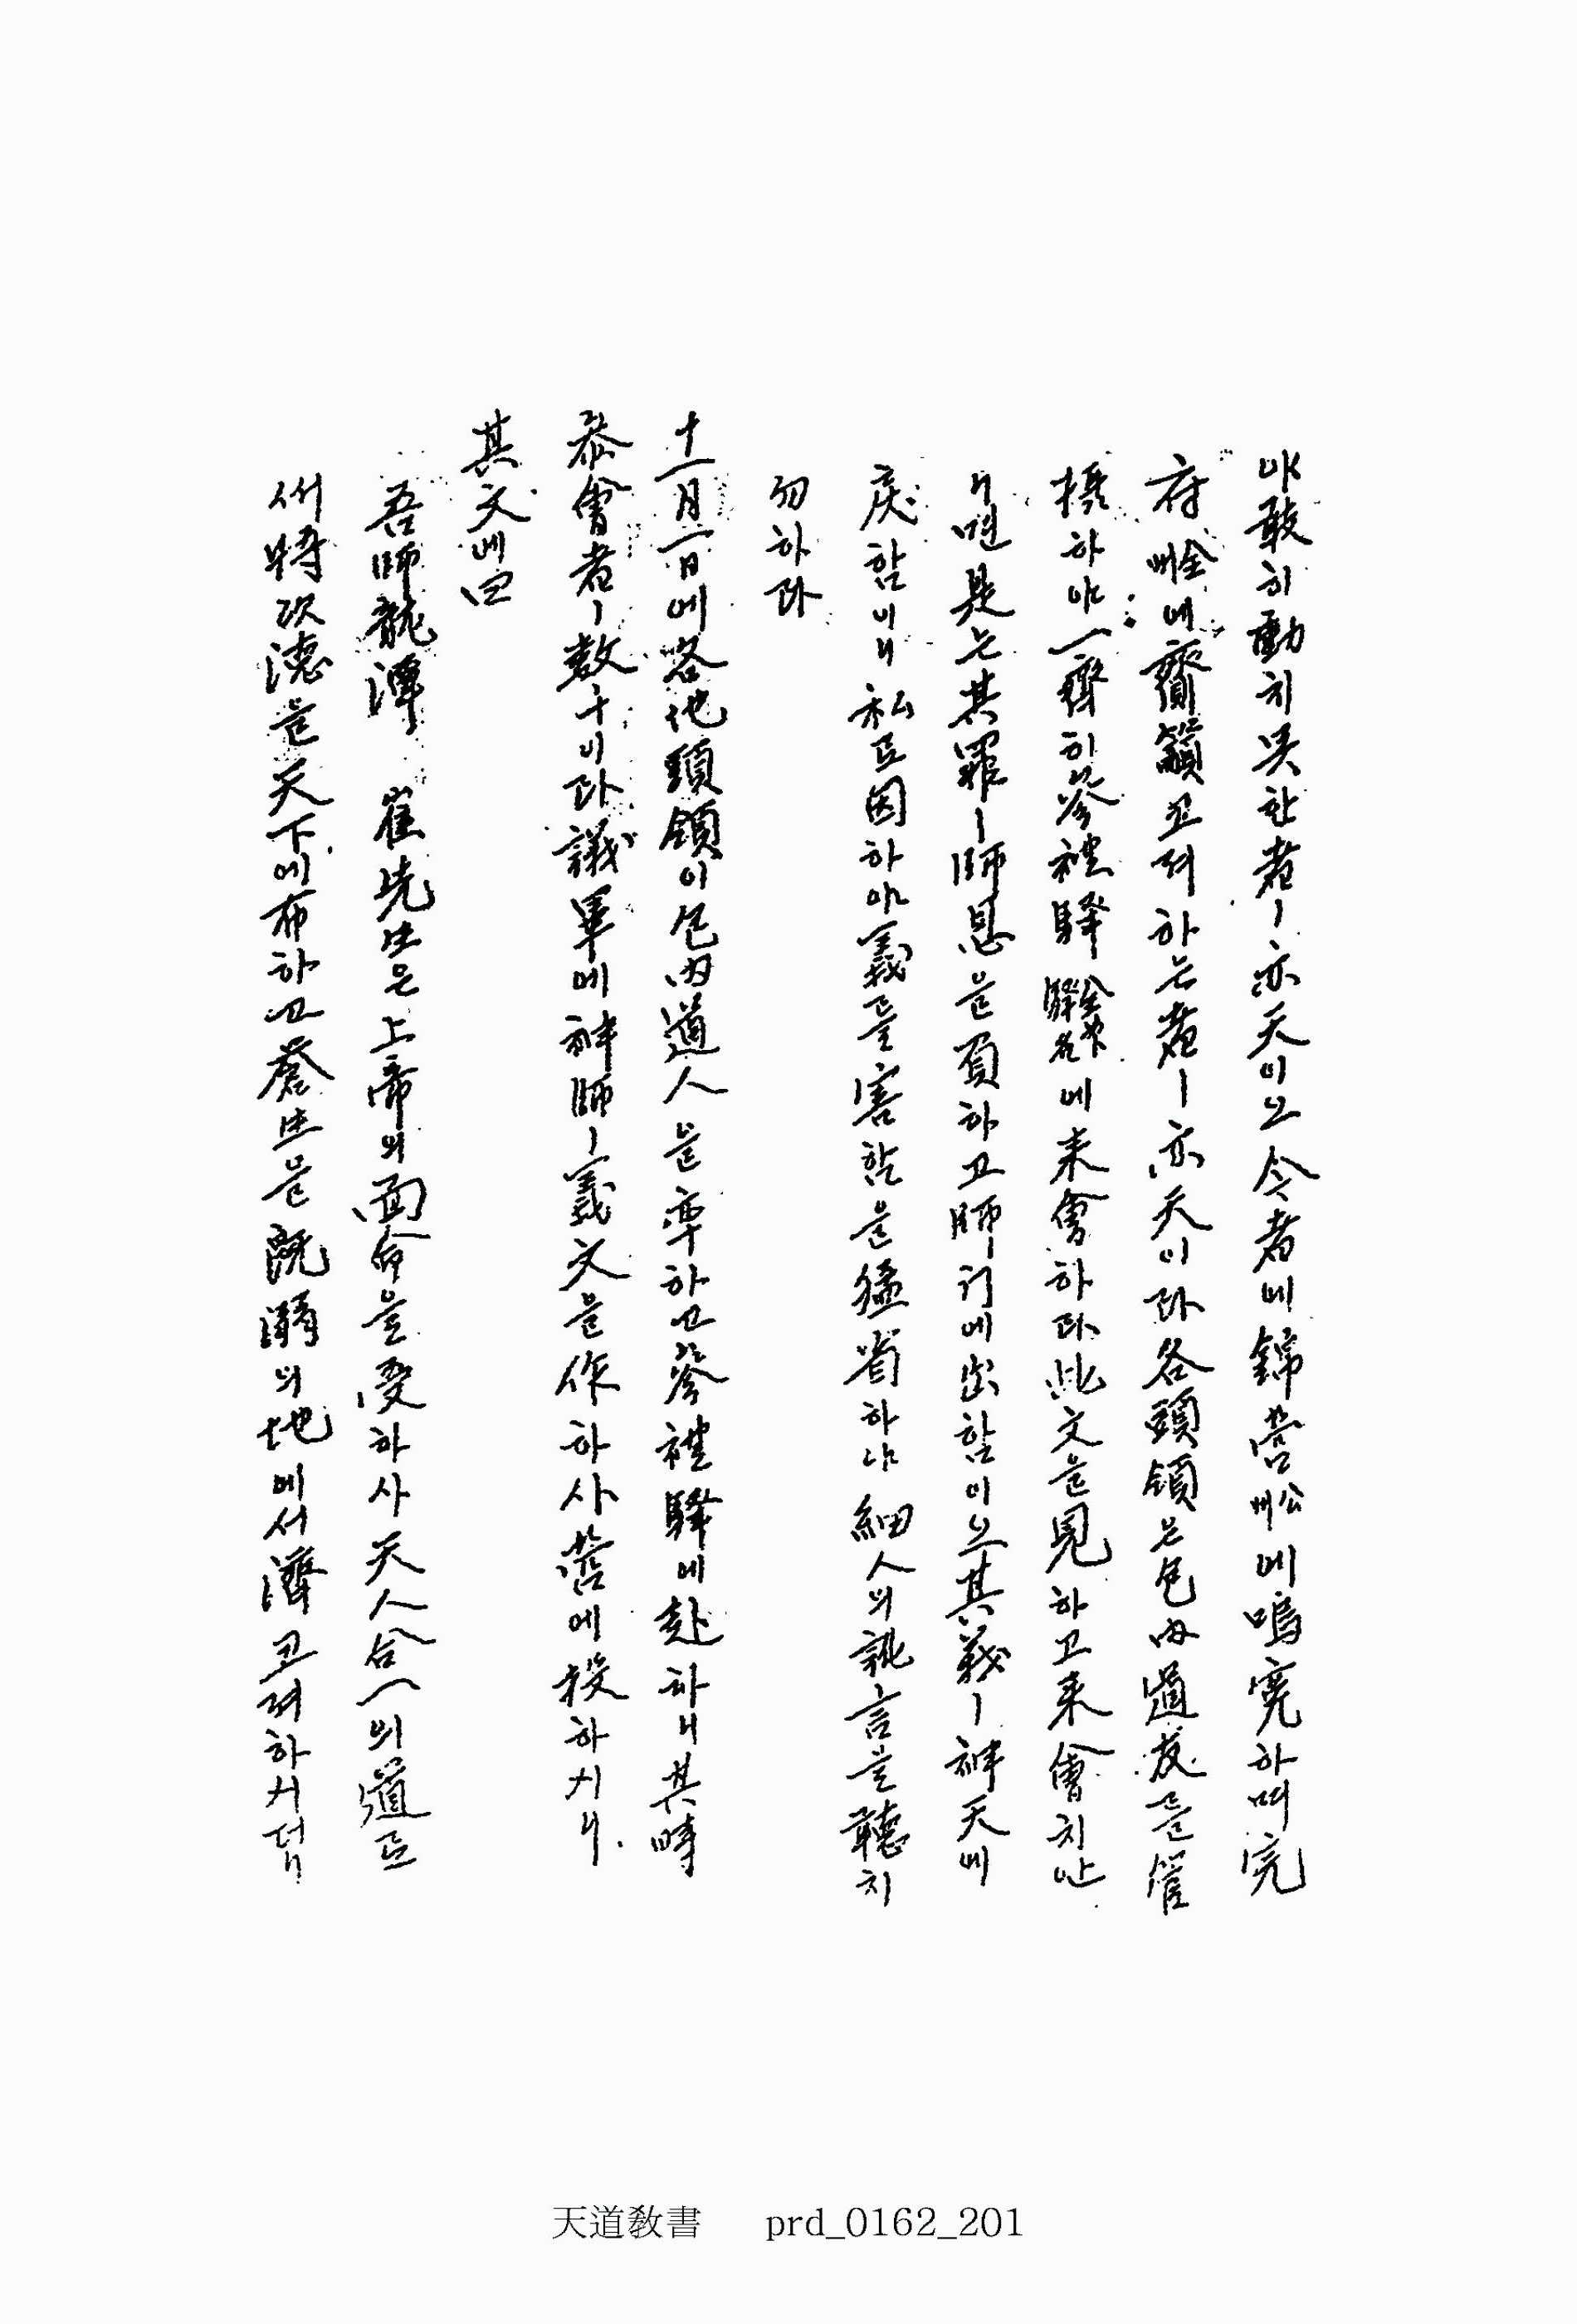 야敢히動치못한者ㅣ亦天이오今者에錦營에嗚寃하며完
府에齎籲고져하는者ㅣ亦天이라各頭領은包內道友를管
하야一齊히參禮驛에來會하라此文을見하고來會치안
니면是는其罪ㅣ師恩을負하고師門에出함이오其義ㅣ神天에
戾함이니私로因하야義를害함을猛省하야細人의訛言을聽치
勿하라
十一月一日에各地頭領이包內道人을率하고參禮驛에赴하니其時
參會者ㅣ數千이라議畢에神師ㅣ義文을作하사營에投하시니
其文에曰
吾師龍潭 崔先生은上帝의面命을受하사天人合一의道로
써將次德을天下에布하고蒼生을旣溺의地에서濟고져하시더니
天道敎書 prd_0162_201